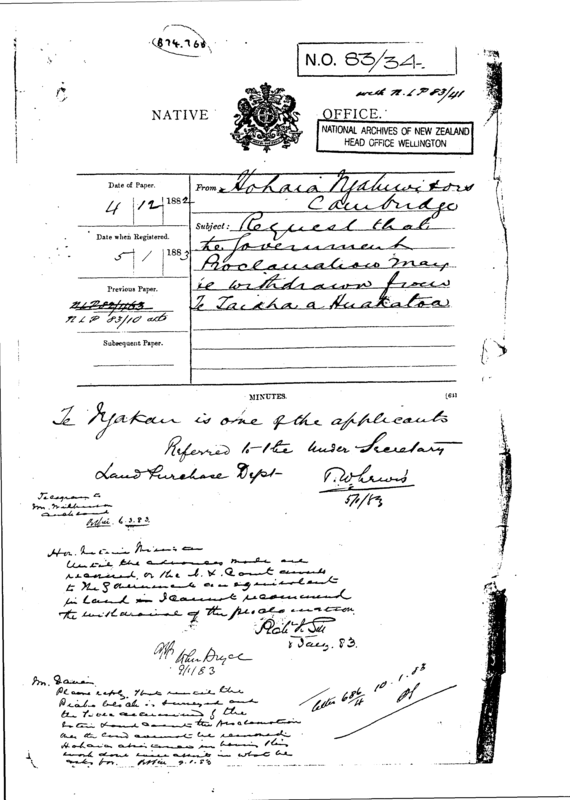 (874.768)
N.O. 83/34
with N.L.P 83/41
NATIVE OFFICE.
NATIONAL ARCHIVES OF NEW ZEALAND
HEAD OFFICE WELLINGTON
Date of Paper.
4 / 12 / 1882
Date when Registered.
5 / 1 / 1883
Previous Paper.
NLP 83/10
Subsequent Paper.
From Hohaia Ngahiwi & ors
Cambridge
Subject: Request that
the Government
Proclamation may
be withdrawn from
Te Taiaha a Huakatoa
MINUTES.
Te Ngakau is one of the applicants
Referred to the Under Secretary
Land Purchase Dept
T.W. Lewis
5/1/83
Telegram to
Mr. Wilkinson
Auckland
6.3.83.
Hon. Native Minister
Until the advances made are
recovered, or the Court awards
to the Government an equivalent
in land I cannot recommend
the withdrawal of the proclamation
Gill
8 Jany. 83.
John Bryce
9/1/83
Mr. Davies
Please reply, that until the
block is surveyed and
the ascertained by the
Land Court the Proclamation
over the land cannot be removed
Hohaia in having this
work done in what he
asks for. 9.1.83
letter 686/4 10.1.83